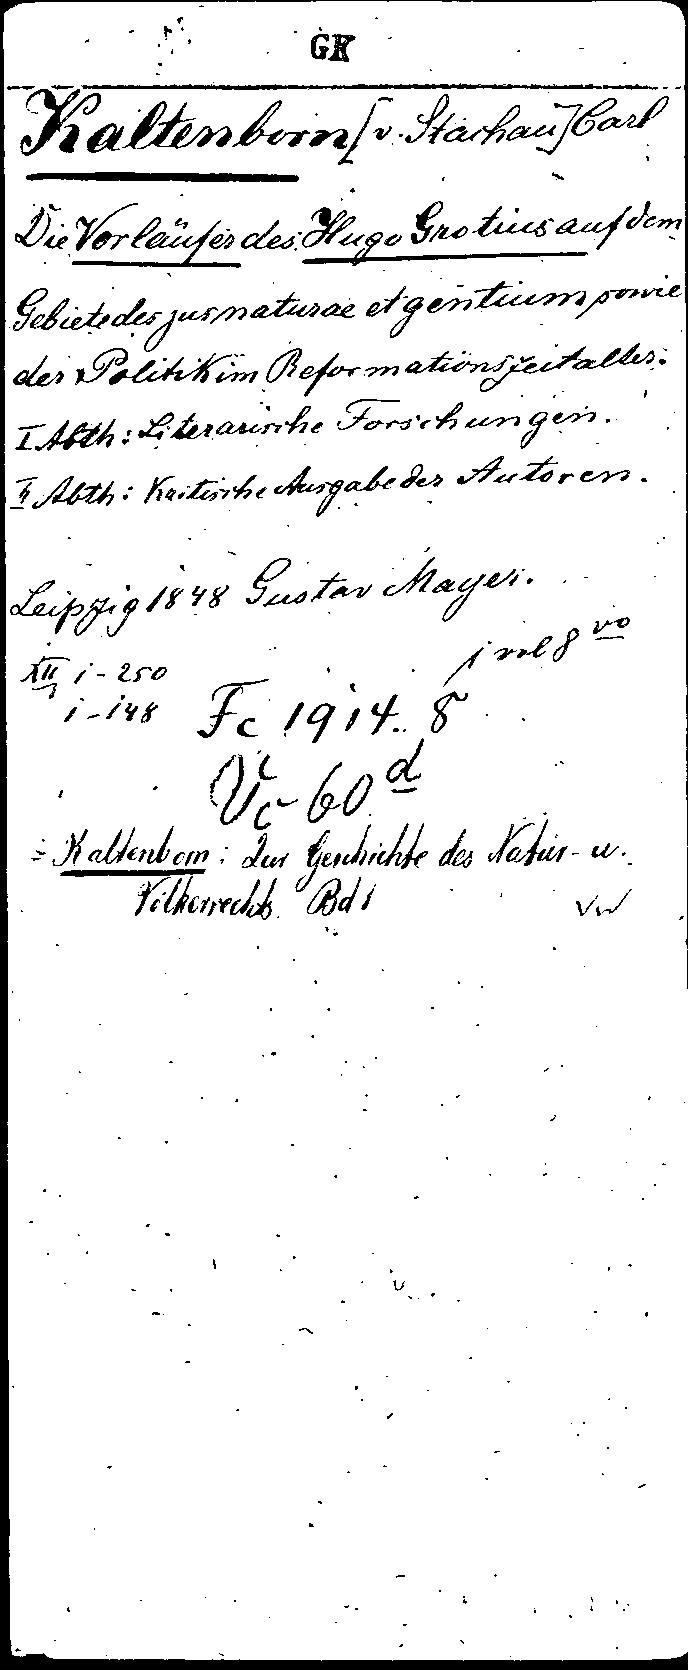 GK
Kaltenborn [v. Stachau] Carl
Die Vorläufer des Hugo Grotius auf dem
Gebiete des jus naturae et gentium sowie
der Politik im Reformationszeitalter.
I Abth: Literarische Forschungen.
II Abth: Kritische Ausgabe der Autoren.
Leipzig 1848 Gustav Mayer.
XII 1-250 1 vol 8 vo
1-148 Fc 1914. 8
Vc 60 d
= Kaltenborn: Zur Geschichte des Natur- u.
Völkerrechts Bd 1